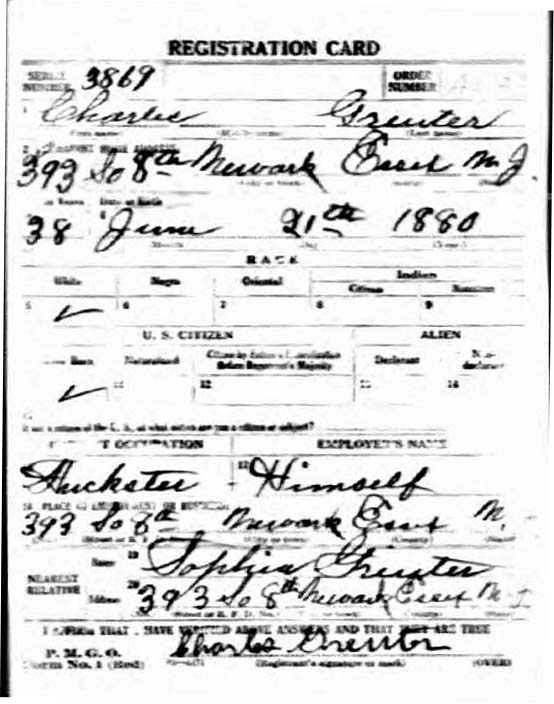 REGISTRATION CARD
SERIAL NUMBER 3869 ORDER NUMBER
1 Charles Greuter
(First name) (Middle name) (Last name)
2 PERMANENT HOME ADDRESS
393 So 8th Newark Essex N. J.
Age in Years Date of Birth
38 June 21th 1880
(Month) (Day) (Year)
RACE
White Negro Oriental Indian
Citizen Noncitizen
5 ✓ 6 7 8 9
U. S. CITIZEN ALIEN
Native Born Naturalized Citizen by Father's Naturalization Before Registrant's Majority Declarant Non-declarant
✓ 11 12 13 14
If not a citizen of the U. S., of what nation are you a citizen or subject?
PRESENT OCCUPATION EMPLOYER'S NAME
Huckster Himself
18 PLACE OF EMPLOYMENT OR BUSINESS
393 So 8th Newark Essex N.
(Street or R. F. D. No.) (City or town) (County) (State)
NEAREST RELATIVE
Name 19 Sophia Greuter
Address 20 393 So 8th Newark Essex N. J.
(Street or R. F. D. No.) (City or town) (County) (State)
I AFFIRM THAT I HAVE VERIFIED ABOVE ANSWERS AND THAT THEY ARE TRUE
P. M. G. O.
Form No. 1 (Red) Charles Greuter
(Registrant's signature or mark) (OVER)